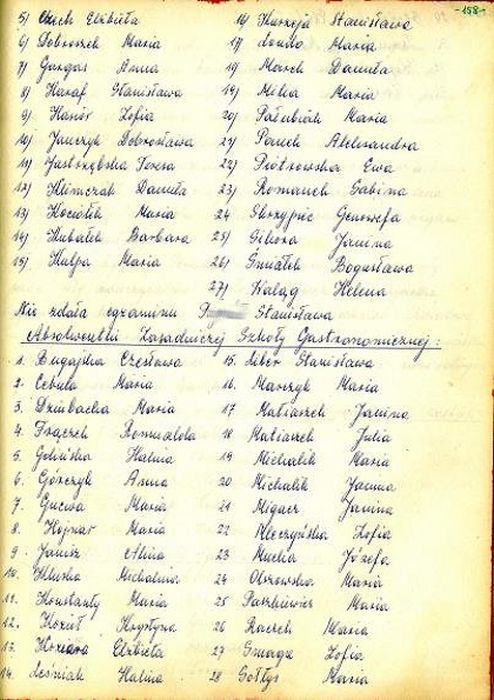 - 158 -
5/ Czech Elżbieta
6/ Dobroszek Maria
7/ Gargas Anna
8/ Karaf Stanisława
9/ Kanór Zofia
10/ Janczyk Dobrosława
11/ Jastrzębska Teresa
12/ Klimczak Danuta
13/ Kociołek Maria
14/ Kubatek Barbara
15/ Kulpa Maria
16/ Kurzeja Stanisława
17/ Londo Maria
18/ Marek Danuta
19/ Mika Maria
20/ Pałubiak Maria
21/ Panek Aleksandra
22/ Piotrowska Ewa
23/ Romanek Sabina
24 Skrzypiec Genowefa
25/ Sikora Janina
26/ Śmiałek Bogusława
27/ Waląg Helena
Nie zdała egzaminu Stanisława
Absolwentki Zasadniczej Szkoły Gastronomicznej:
1. Bugajska Czesława
2. Cebula Maria
3. Dziubacka Maria
4. Frączek Romualda
5. Golińska Halina
6. Górczyk Anna
7. Gucwa Maria
8. Hojnar Maria
9. Janusz Alina
10. Kluska Michalina
11. Konstanty Maria
12. Kozioł Krystyna
13. Koziara Elżbieta
14. Leśniak Halina
15. Liber Stanisława
16. Marczyk Maria
17 Matiaszek Janina
18 Matiaszek Julia
19 Michalik Maria
20 Michalik Janina
21 Migacz Janina
22 Mleczyńska Zofia
23 Mucha Józefa
24 Olszowska Maria
25 Paszkiewicz Maria
26 Raczek Maria
27 Smaga Zofia
28 Sołtys Maria